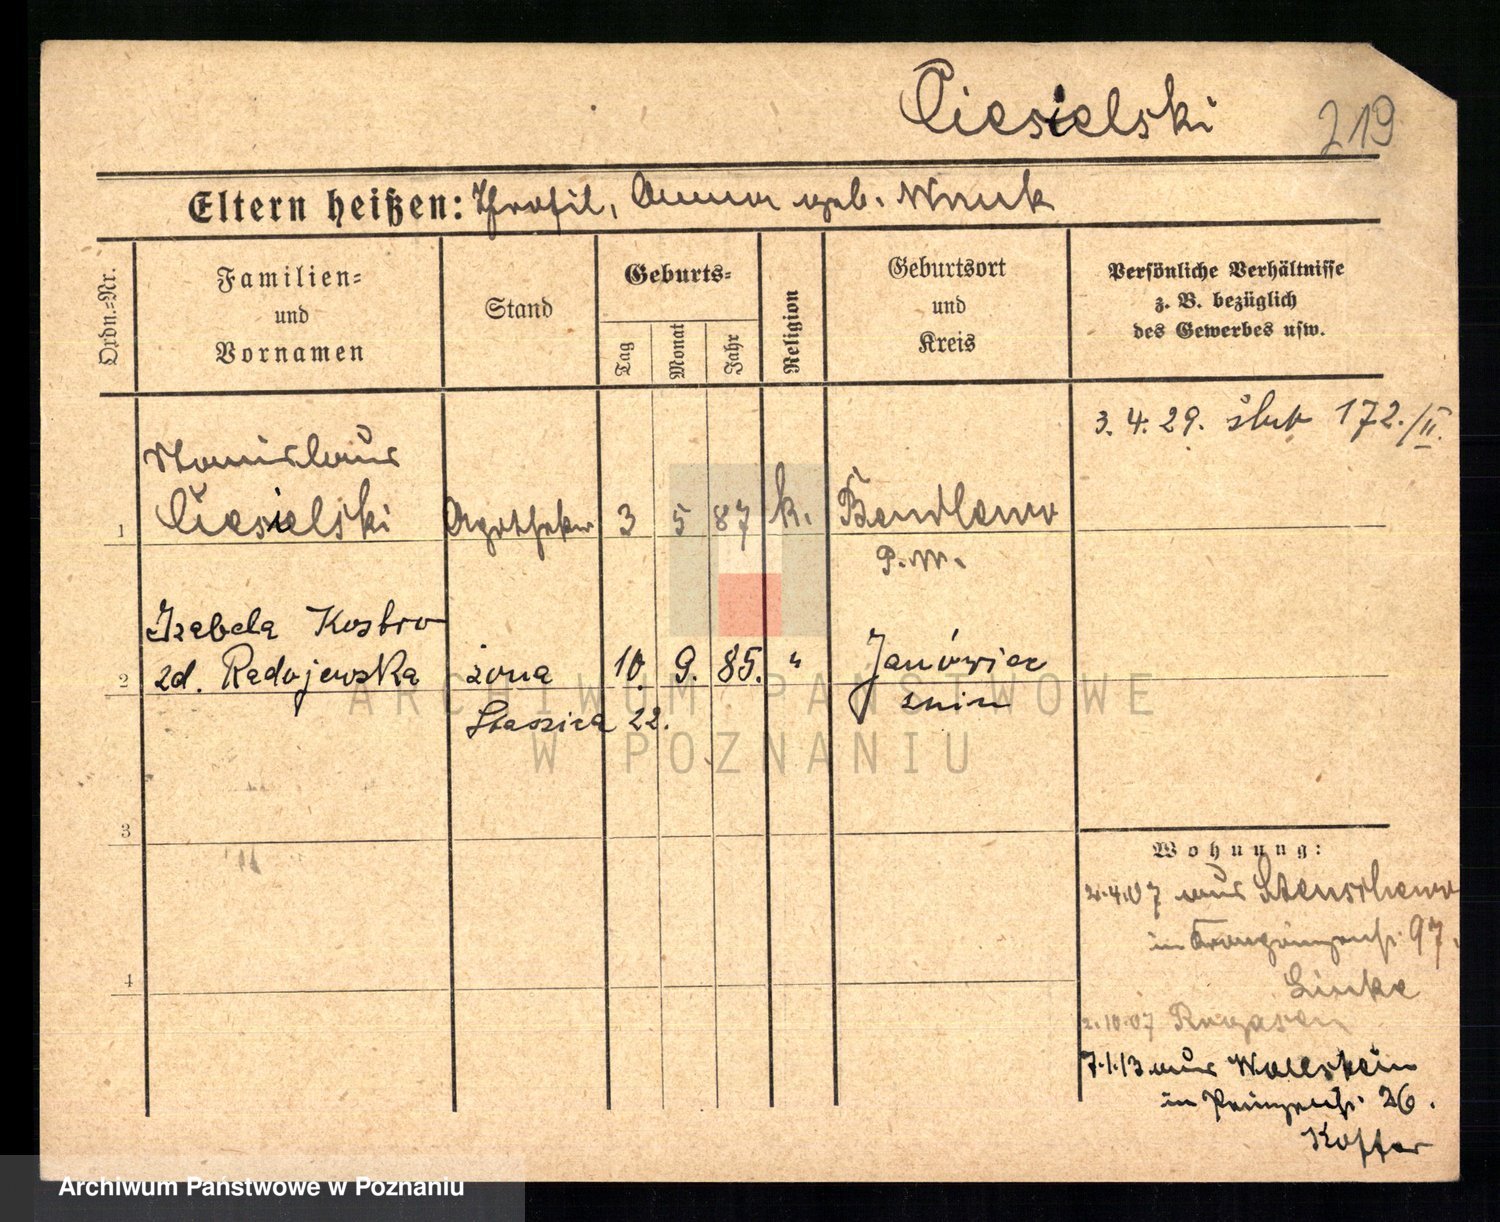 Ciesielski
219
Eltern heißen: Theofil, Anna geb. Nowak
Ordn.=Nr.
Familien=
und
Vornamen
Stand
Geburts=
Tag
Monat
Jahr
Religion
Geburtsort
und
Kreis
Persönliche Verhältnisse
z. B. bezüglich
des Gewerbes usw.
3. 4. 29. ślub 172./II.
Stanislaus
1 Ciesielski Apotheker 3 5 87 k. Bendlewo
P. W.
Izabela Kosbro
2 zd. Radojewska żona 10. 9. 85. " Janówiec
żnin
Staszica 22.
3
4
Wohnung:
2.4.07 aus Stenschewo
in 97.
Linke
2.10.07 Rogasen
7.1.13 aus Wollstein
in Prinzenstr. 26.
Koffer
ARCHIWUM PAŃSTWOWE
W POZNANIU
Archiwum Państwowe w Poznaniu